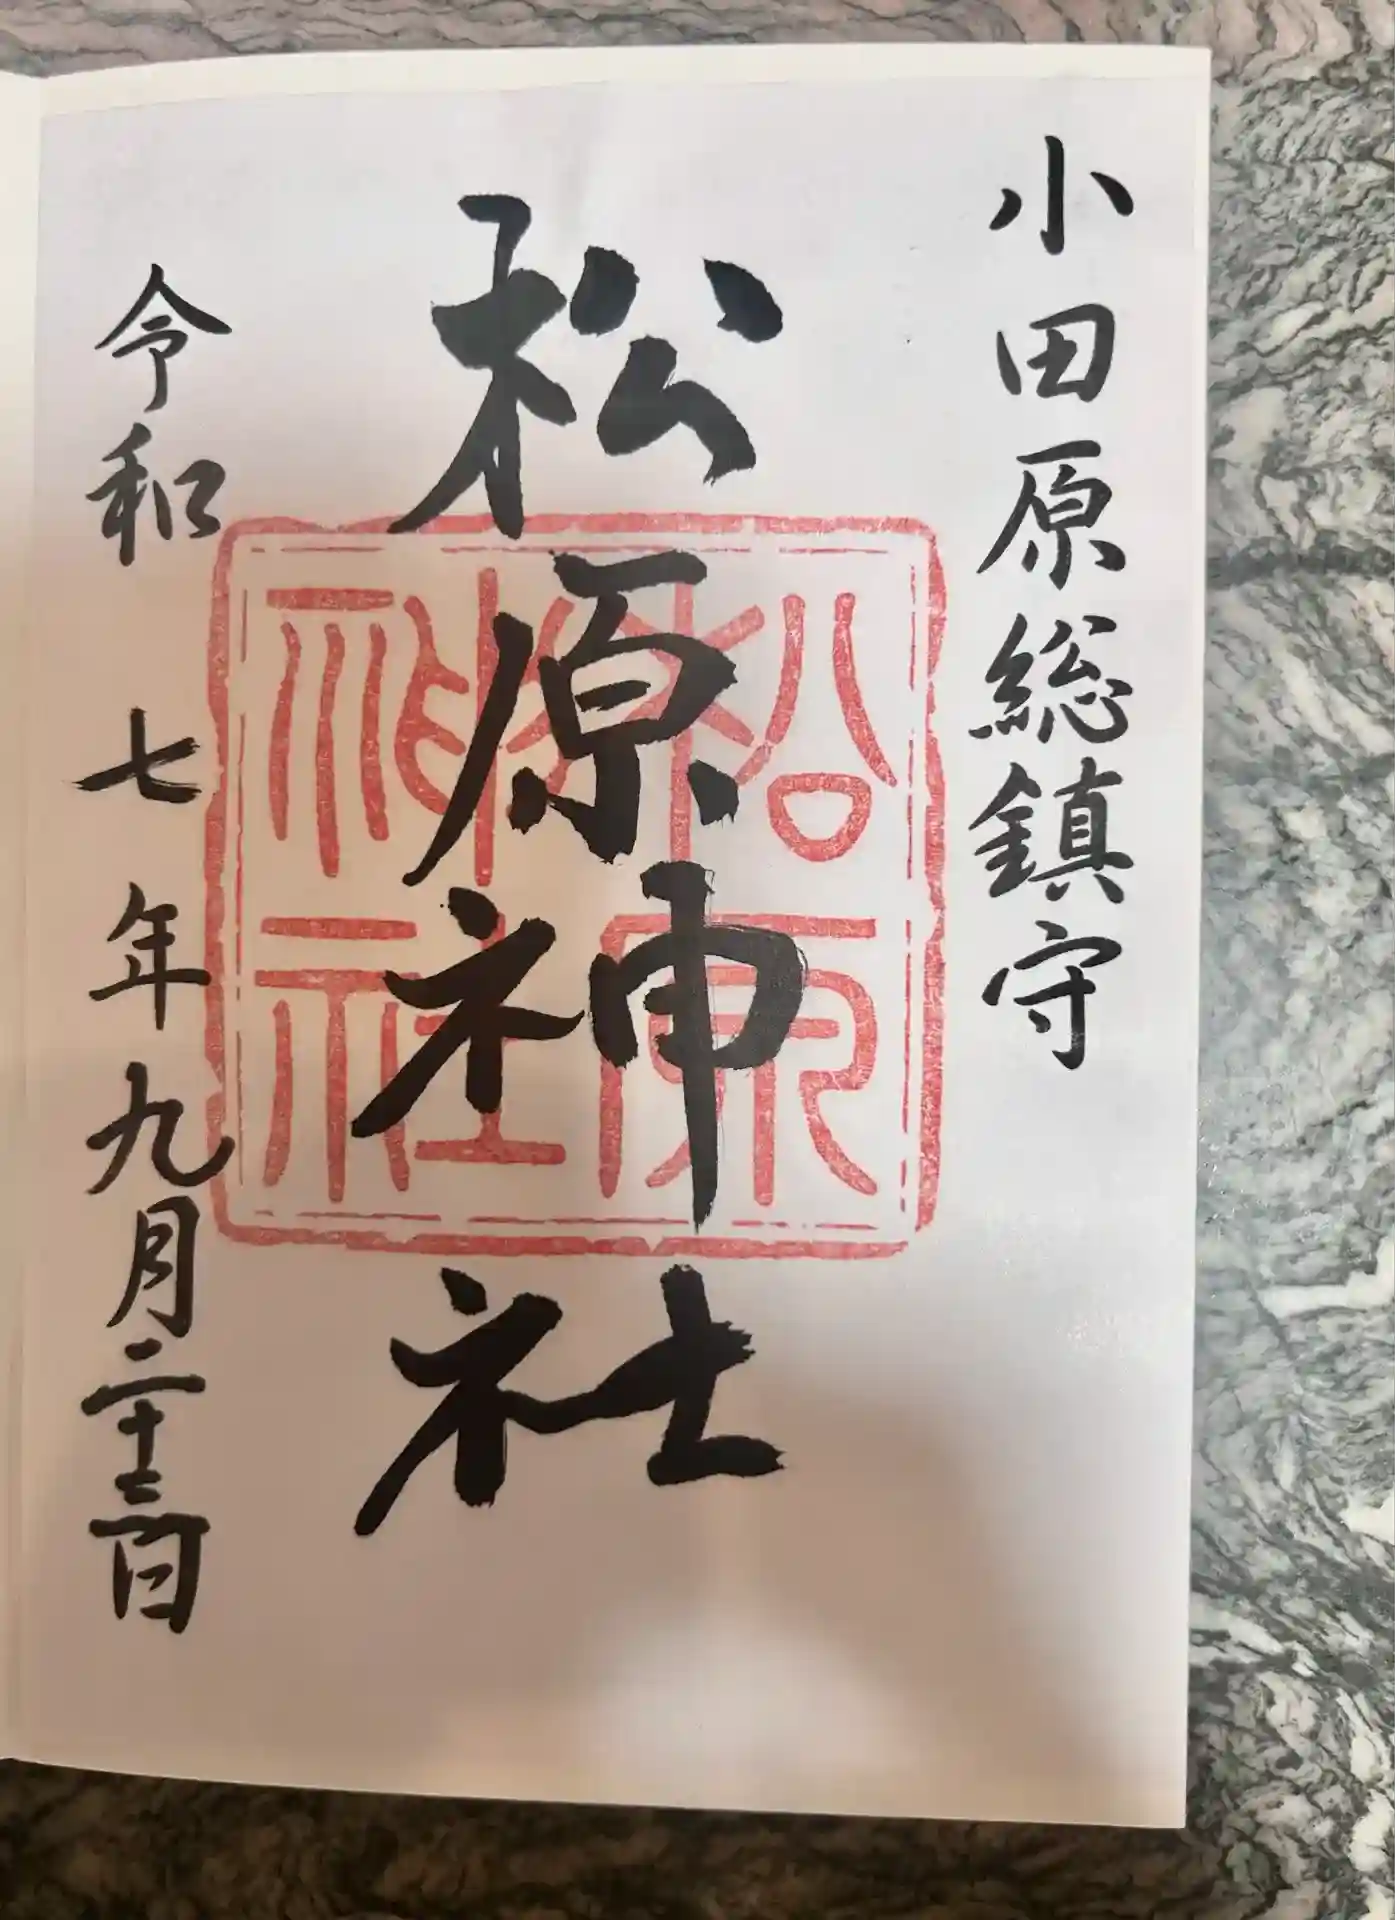 小田原総鎮守
松原神社
令和七年九月二十三日
松原神社